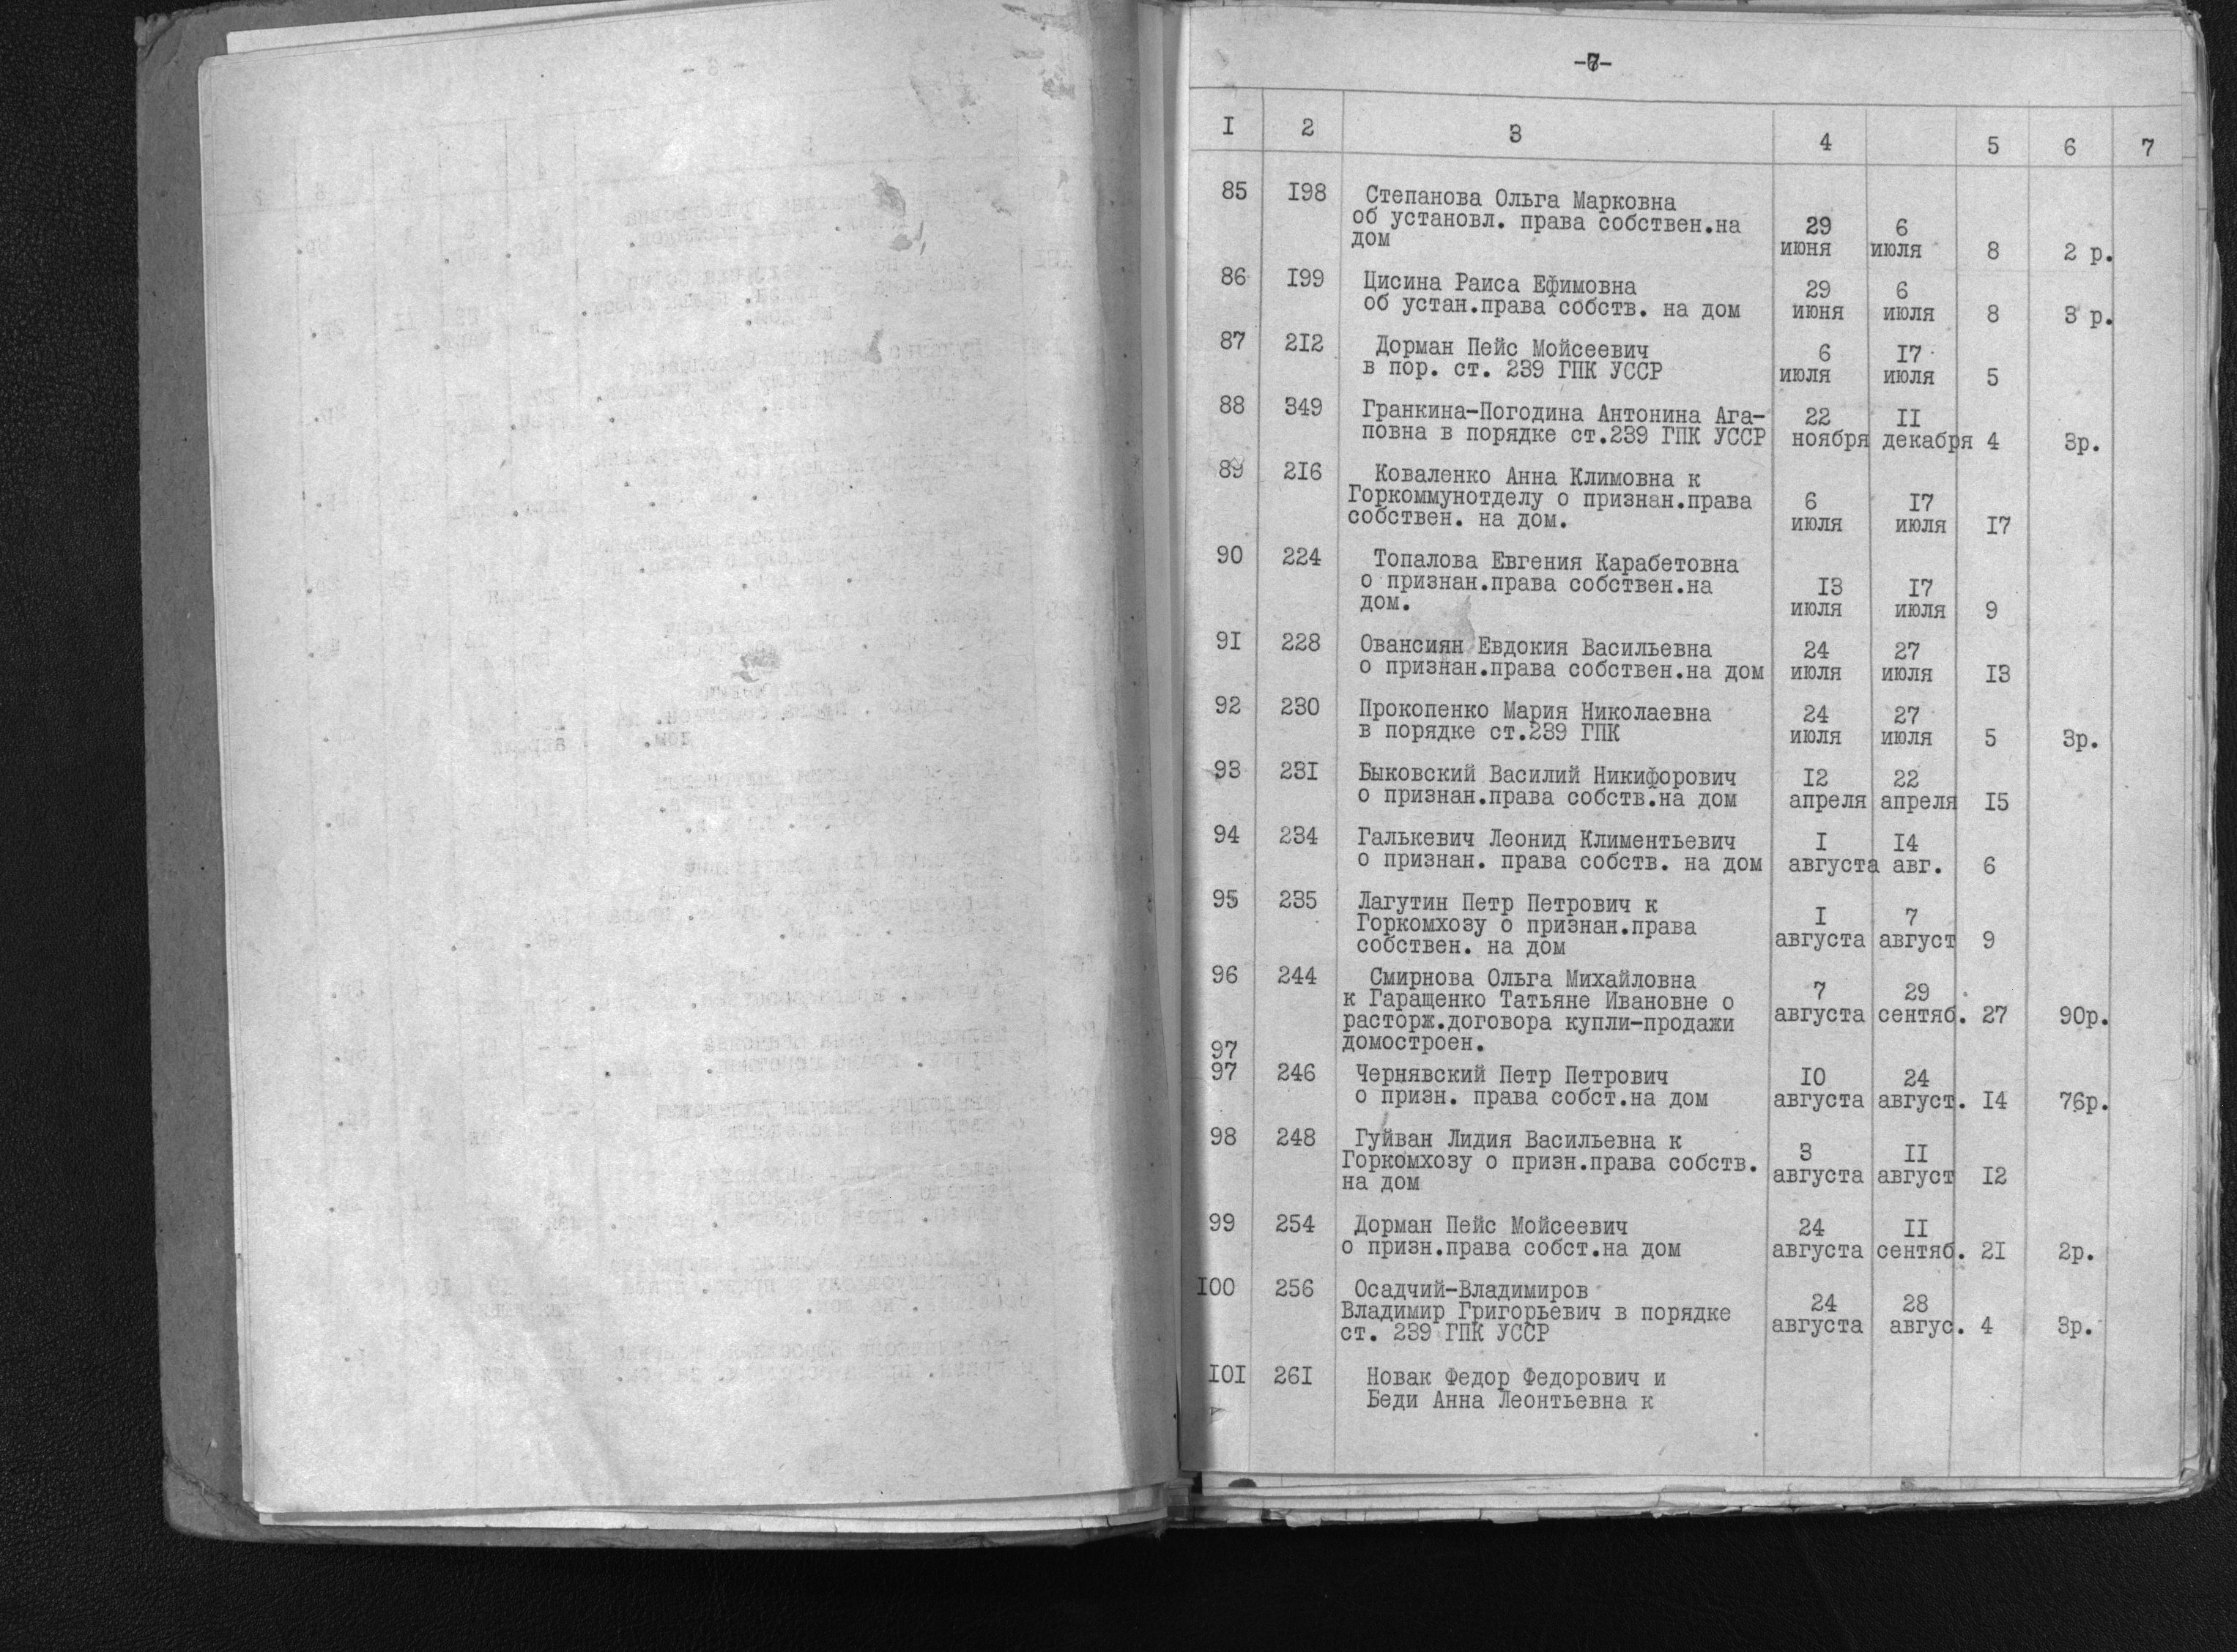 -7-
I 2 3 4 5 6 7
85 I98 Степанова Ольга Марковна
об установл. права собствен.на 29 6
дом июня июля 8 2 р.
86 I99 Цисина Раиса Ефимовна 29 6
об устан.права собств. на дом июня июля 8 3 р.
87 2I2 Дорман Пейс Мойсеевич 6 I7
в пор. ст. 239 ГПК УССР июля июля 5
88 349 Гранкина-Погодина Антонина Ага- 22 II
повна в порядке ст.239 ГПК УССР ноября декабря 4 3р.
89 2I6 Коваленко Анна Климовна к
Горкоммунотделу о признан.права 6 I7
собствен. на дом. июля июля I7
90 224 Топалова Евгения Карабетовна
о признан.права собствен.на I3 I7
дом. июля июля 9
9I 228 Овансиян Евдокия Васильевна 24 27
о признан.права собствен.на дом июля июля I3
92 230 Прокопенко Мария Николаевна 24 27
в порядке ст.239 ГПК июля июля 5 3р.
93 23I Быковский Василий Никифорович I2 22
о признан.права собств.на дом апреля апреля I5
94 234 Галькевич Леонид Климентьевич I I4
о признан. права собств. на дом августа авг. 6
95 235 Лагутин Петр Петрович к
Горкомхозу о признан.права I 7
собствен. на дом августа август 9
96 244 Смирнова Ольга Михайловна
к Гаращенко Татьяне Ивановне о 7 29
расторж.договора купли-продажи августа сентяб. 27 90р.
97 домостроен.
97 246 Чернявский Петр Петрович I0 24
о призн. права собст.на дом августа август. I4 76р.
98 248 Гуйван Лидия Васильевна к
Горкомхозу о призн.права собств. 3 II
на дом августа август I2
99 254 Дорман Пейс Мойсеевич 24 II
о призн.права собст.на дом августа сентяб. 2I 2р.
I00 256 Осадчий-Владимиров
Владимир Григорьевич в порядке 24 28
ст. 239 ГПК УССР августа авгус. 4 3р.
I0I 26I Новак Федор Федорович и
Беди Анна Леонтьевна к